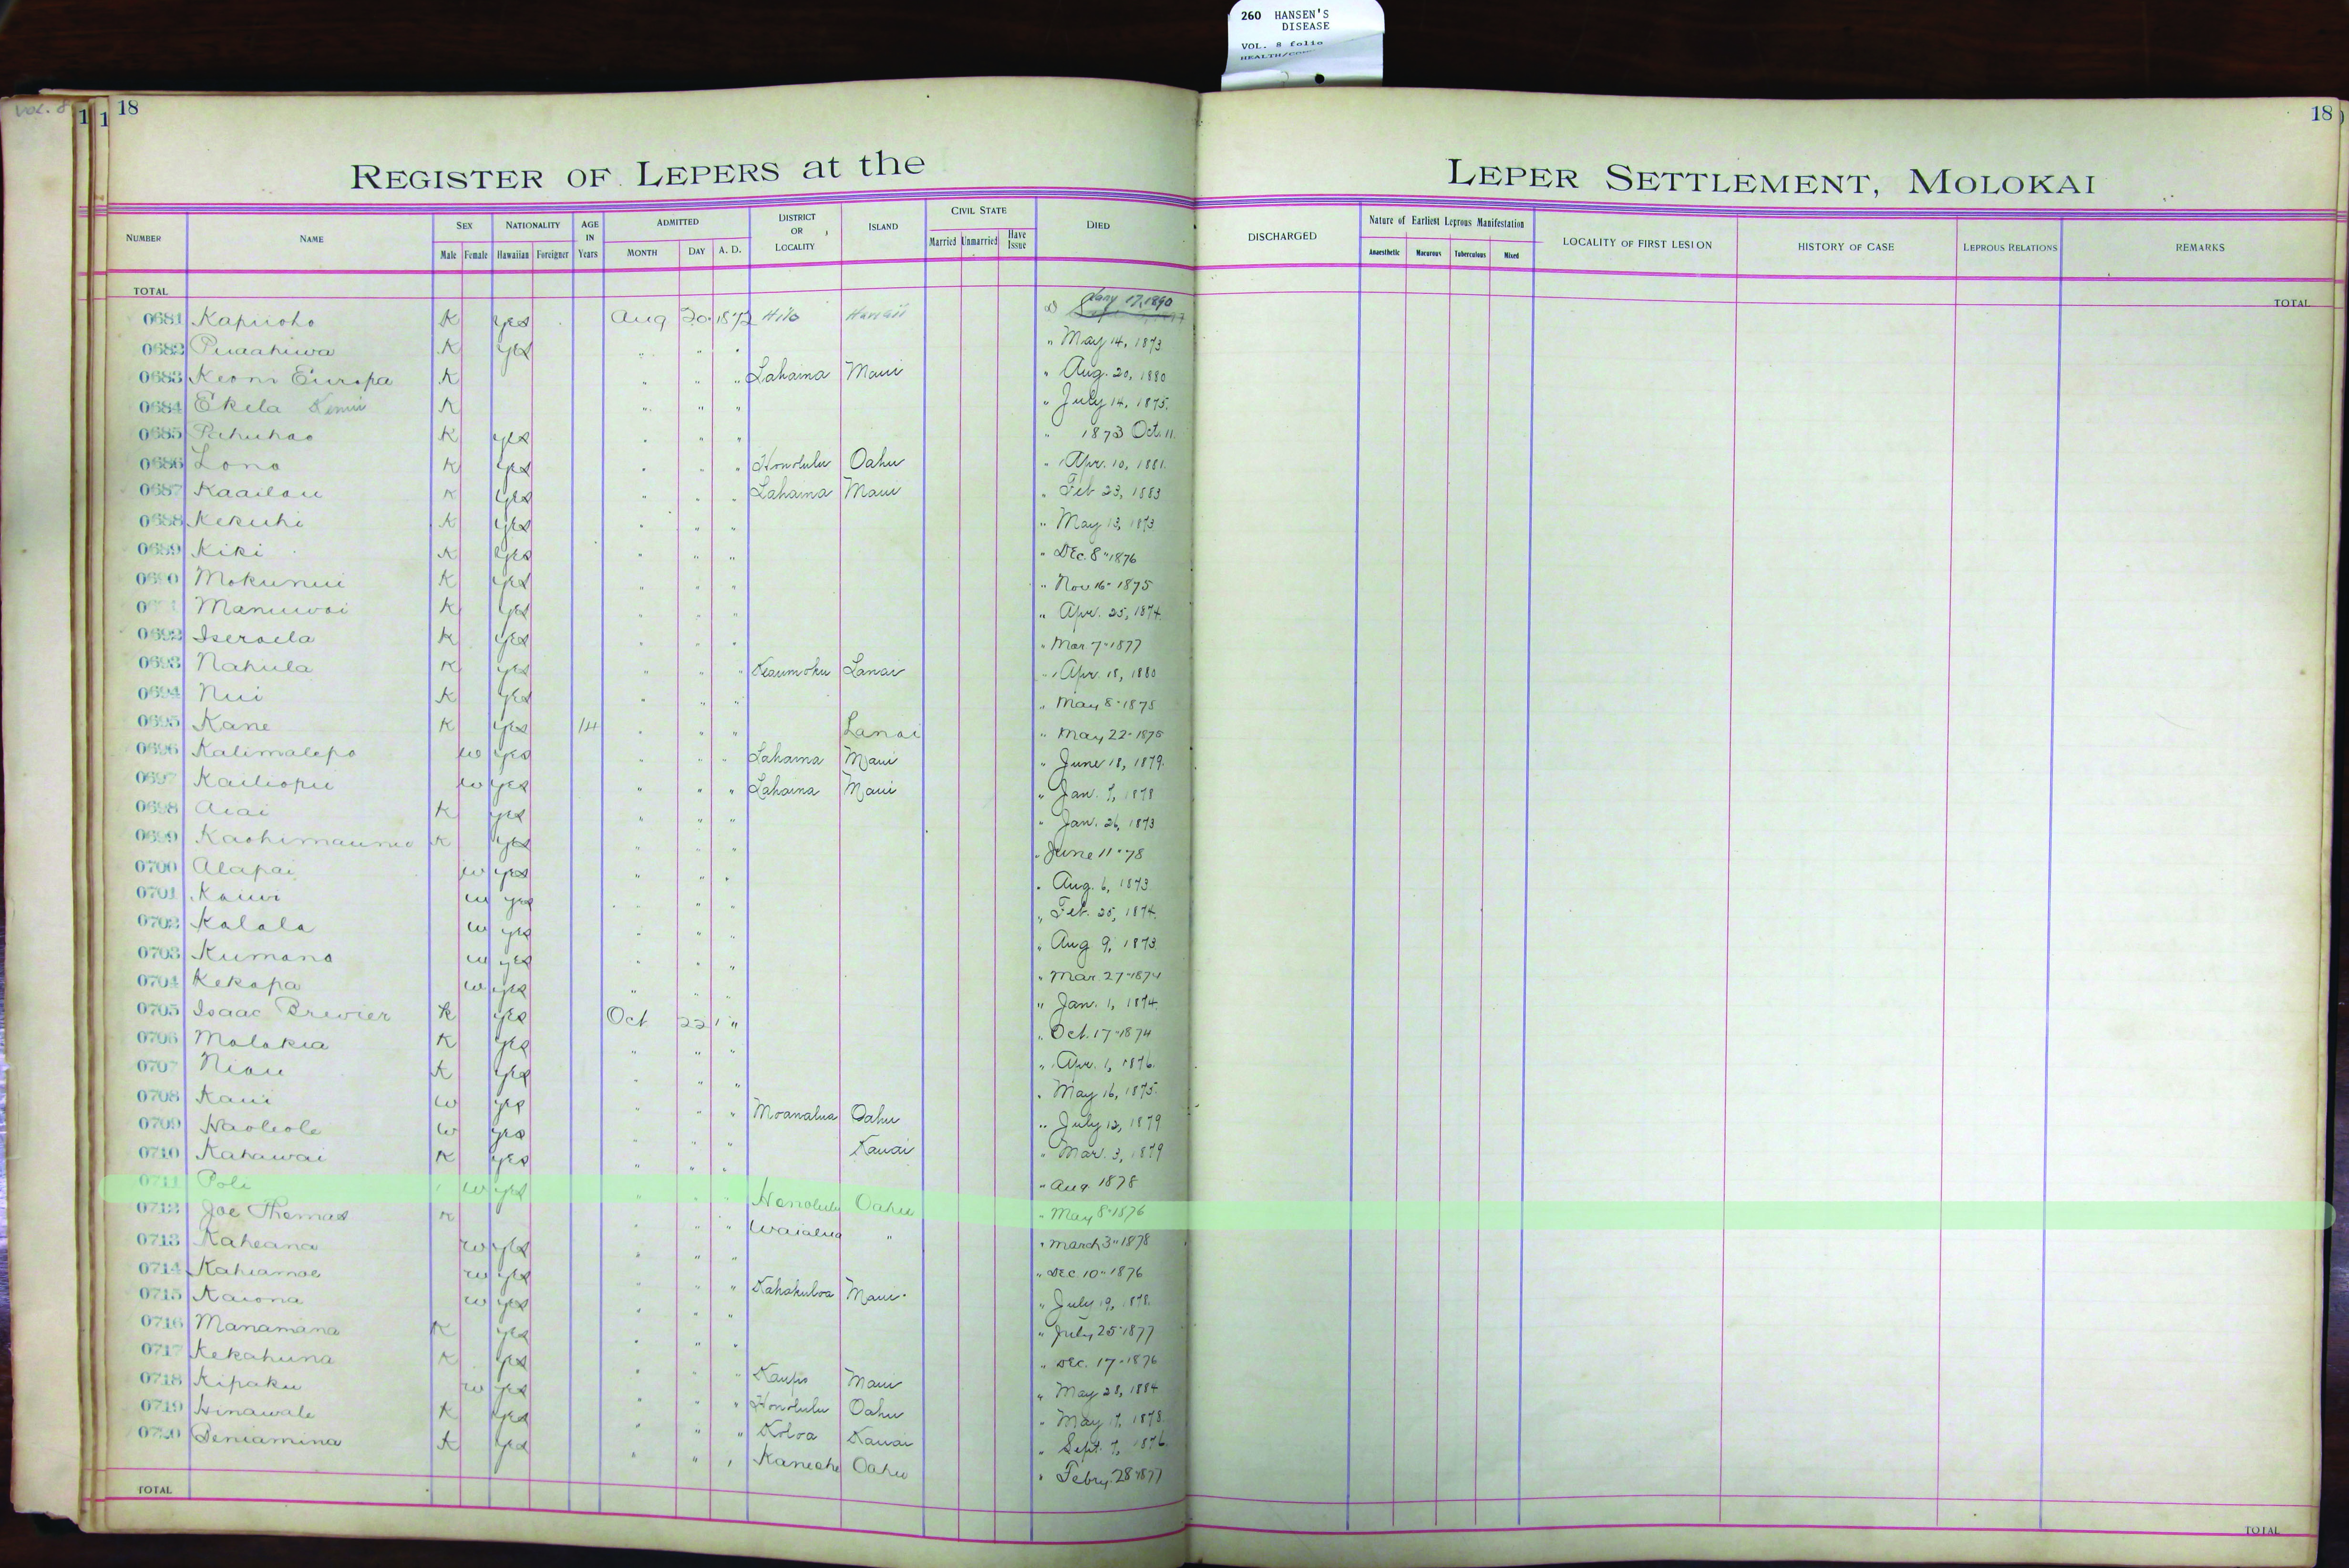 260 HANSEN'S
DISEASE
VOL. 8 folio
VOL. 8
18
18
REGISTER OF LEPERS at the
LEPER SETTLEMENT, MOLOKAI
NUMBER NAME SEX Male Female NATIONALITY Hawaiian Foreigner AGE IN Years ADMITTED MONTH DAY A. D. DISTRICT OR LOCALITY ISLAND CIVIL STATE Married Unmarried Have Issue DIED
DISCHARGED Nature of Earliest Leprous Manifestation Anaesthetic Macurous Tuberculous Mixed LOCALITY OF FIRST LESION HISTORY OF CASE LEPROUS RELATIONS REMARKS
TOTAL
TOTAL
0681 Kapiioho K yes Aug 20 1872 Hilo Hawaii Jany 17, 1890
0682 Puaahiwa K yes " " " " May 14, 1873
0683 Keoni Europa K " " " Lahaina Maui " Aug. 20, 1880
0684 Ekela K " " " " July 14, 1875.
0685 Pahuhao K yes " " " " 1873 Oct. 11
0686 Lono K yes " " " Honolulu Oahu " Apr. 10, 1881.
0687 Kaailau K yes " " " Lahaina Maui " Feb 23, 1883
0688 Kekuhi K yes " " " " May 13, 1873
0689 Kiki K yes " " " " Dec. 8" 1876
0690 Mokunui K yes " " " " Nov 16- 1875
Manuwai K yes " " " " Apr. 25, 1874.
0692 Iseraela K yes " " " " Mar 7" 1877
0693 Nahula K yes " " " Keaumoku Lanai " Apr. 18, 1880
0694 Nui K yes " " " " May 8" 1875
0695 Kane K yes 14 " " " Lanai " May 22- 1875
0696 Kalimalepo w yes " " " Lahaina Maui " June 18, 1879.
0697 Kailiopu w yes " " " Lahaina Maui " Jan. 7, 1878
0698 Aiai K yes " " " " Jan. 26, 1873
0699 K yes " " " " June 11" 78
0700 Alapai w yes " " " " Aug. 6, 1873
0701 Kauwi w yes " " " " Feb. 25, 1874.
0702 Kalala w yes " " " " Aug 9, 1873
0703 Kumano w yes " " " " Mar 27" 1874
0704 Kekapa w yes " " " " Jan. 1, 1874.
0705 Isaac Brewier K yes Oct 22 " " Oct. 17" 1874
0706 Malakia K yes " " " " Apr. 1, 1876.
0707 Niau K yes " " " " May 16, 1875.
0708 Kaui w yes " " " Moanalua Oahu " July 12, 1879
0709 Haoleole w yes " " " Kauai " Mar. 3, 1879
0710 Kahawai K yes " " " " Aug 1878
0711 Pole w yes " " " Honolulu Oahu " May 8" 1876
0712 Joe Thomas K " " " Waialua " " March 3" 1878
0713 Kaheana w yes " " " " Dec 10" 1876
0714 Kahiamoe w yes " " " Kahakuloa Maui " July 19, 1878.
0715 Kaiona w yes " " " " July 25" 1877
0716 Manamana K yes " " " " Dec. 17- 1876
0717 Kekahuna K yes " " " Kaupo Maui " May 28, 1884
0718 Kipaku w yes " " " Honolulu Oahu " May 17, 1878.
0719 Hinawale K yes " " " Koloa Kauai " Sept. 7, 1876.
0720 Beniamina K yes " " " Kaneohe Oahu " Febry. 28" 1877
TOTAL
TOTAL